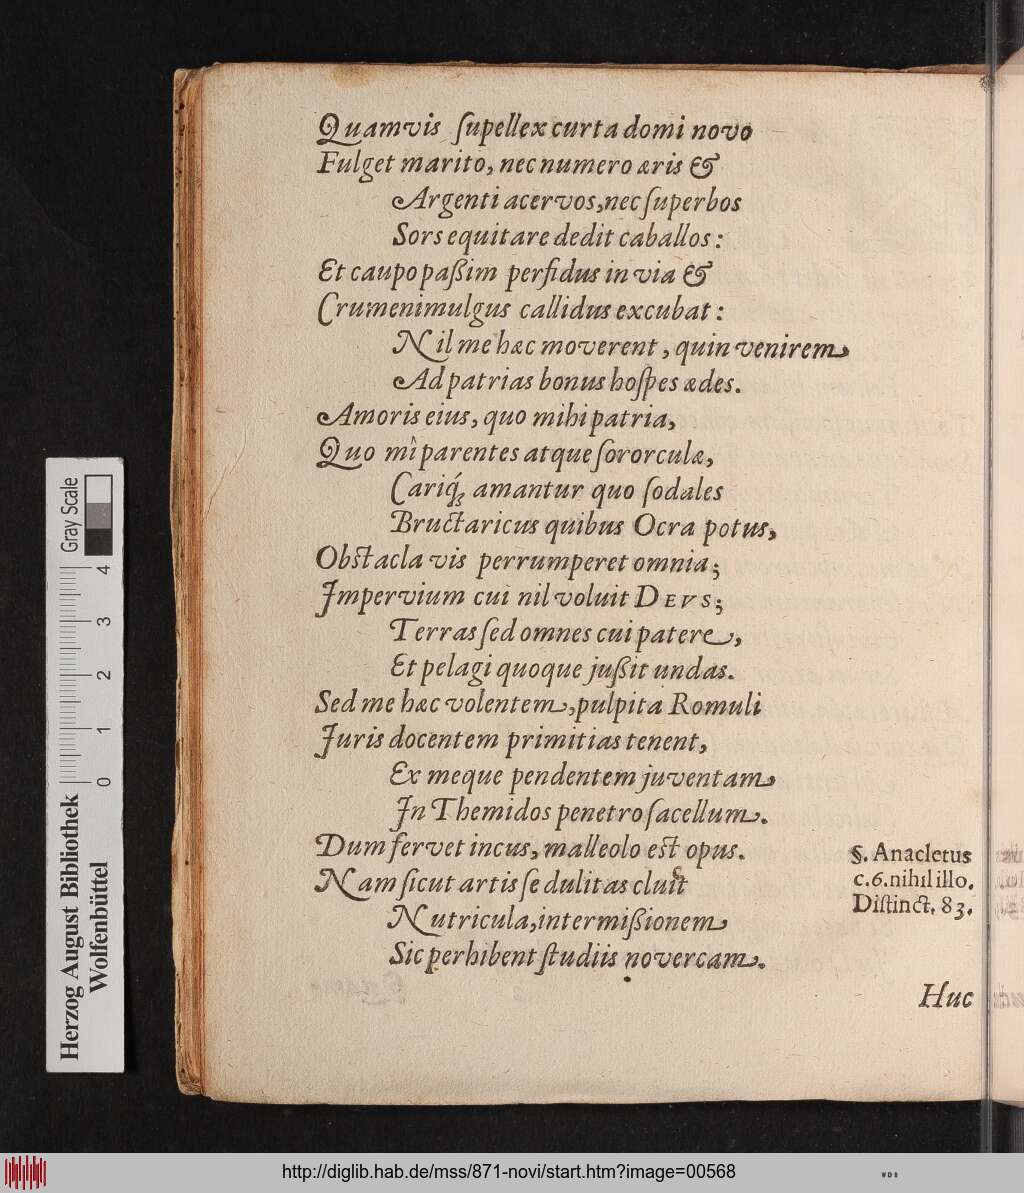 Quamvis ſupellex curta domi novo
Fulget marito, nec numero æris &
Argenti acervos, nec ſuperbos
Sors equitare dedit caballos:
Et caupo paßim perfidus in via &
Crumenimulgus callidus excubat:
Nil me hæc moverent, quin venirem
Ad patrias bonus hoſpes ædes.
Amoris eius, quo mihi patria,
Quo mî parentes atque ſororculæ,
Cariq́ꝫ amantur quo ſodales
Bructaricus quibus Ocra potus,
Obſtacla vis perrumperet omnia;
Impervium cui nil voluit DEVS;
Terras ſed omnes cui patere,
Et pelagi quoque jußit undas.
Sed me hæc volentem, pulpita Romuli
Juris docentem primitias tenent,
Ex meque pendentem juventam
In Themidos penetro ſacellum.
Dum fervet incus, malleolo eſt opus.
§. Anacletus
Nam ſicut artis ſedulitas cluit
c. 6. nihil illo.
Diſtinct. 83.
Nutricula, intermißionem
Sic perhibent ſtudiis novercam.
Huc
Gray Scale
4
3
2
1
0
Herzog August Bibliothek
Wolfenbüttel
http://diglib.hab.de/mss/871-novi/start.htm?image=00568